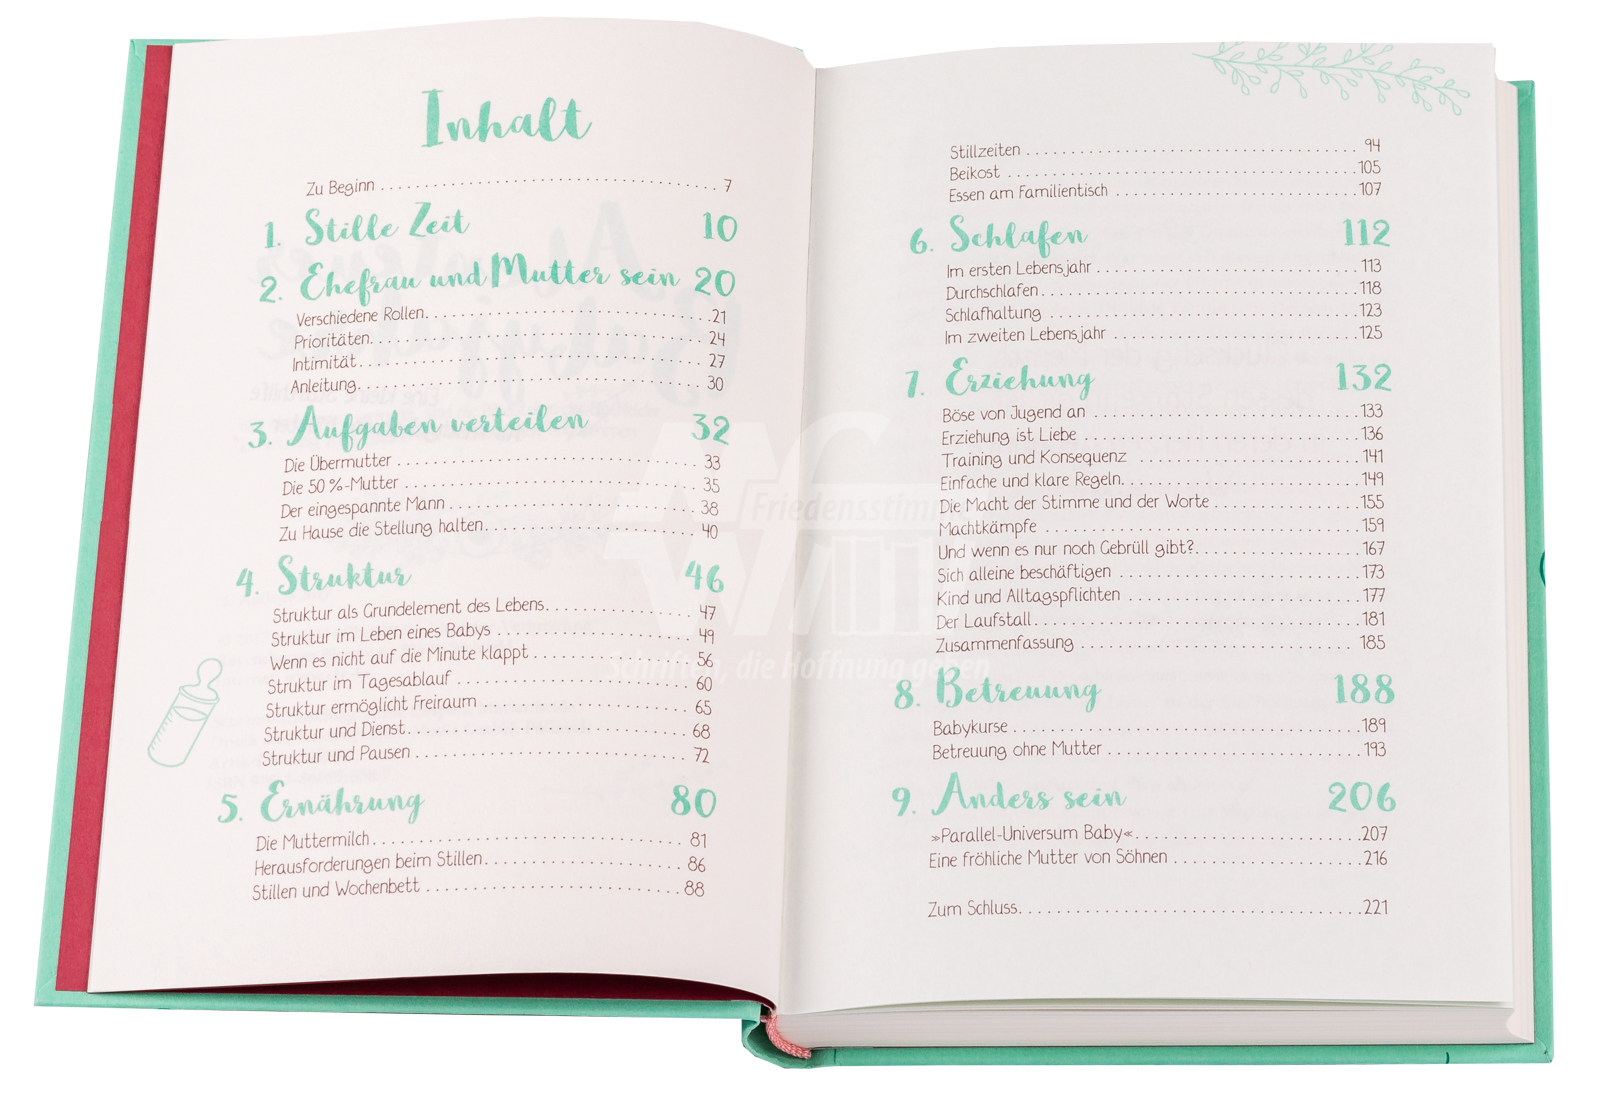 Inhalt
Zu Beginn . . . . . . . . . . . . . . . . . . . . 7
1. Stille Zeit 10
2. Ehefrau und Mutter sein 20
Verschiedene Rollen. . . . . . . . . . . . . . . . . . . . 21
Prioritäten. . . . . . . . . . . . . . . . . . . . 24
Intimität. . . . . . . . . . . . . . . . . . . . 27
Anleitung. . . . . . . . . . . . . . . . . . . . 30
3. Aufgaben verteilen 32
Die Übermutter . . . . . . . . . . . . . . . . . . . . 33
Die 50 %-Mutter . . . . . . . . . . . . . . . . . . . . 35
Der eingespannte Mann . . . . . . . . . . . . . . . . . . . . 38
Zu Hause die Stellung halten. . . . . . . . . . . . . . . . . . . . 40
4. Struktur 46
Struktur als Grundelement des Lebens. . . . . . . . . . . . . . . . 47
Struktur im Leben eines Babys . . . . . . . . . . . . . . . . . . . . 49
Wenn es nicht auf die Minute klappt . . . . . . . . . . . . . . . . 56
Struktur im Tagesablauf . . . . . . . . . . . . . . . . . . . . 60
Struktur ermöglicht Freiraum . . . . . . . . . . . . . . . . . . . . 65
Struktur und Dienst. . . . . . . . . . . . . . . . . . . . 68
Struktur und Pausen . . . . . . . . . . . . . . . . . . . . 72
5. Ernährung 80
Die Muttermilch. . . . . . . . . . . . . . . . . . . . 81
Herausforderungen beim Stillen. . . . . . . . . . . . . . . . . . . . 86
Stillen und Wochenbett . . . . . . . . . . . . . . . . . . . . 88
Stillzeiten . . . . . . . . . . . . . . . . . . . . 94
Beikost . . . . . . . . . . . . . . . . . . . . 105
Essen am Familientisch . . . . . . . . . . . . . . . . . . . . 107
6. Schlafen 112
Im ersten Lebensjahr . . . . . . . . . . . . . . . . . . . . 113
Durchschlafen. . . . . . . . . . . . . . . . . . . . 118
Schlafhaltung . . . . . . . . . . . . . . . . . . . . 123
Im zweiten Lebensjahr . . . . . . . . . . . . . . . . . . . . 125
7. Erziehung 132
Böse von Jugend an . . . . . . . . . . . . . . . . . . . . 133
Erziehung ist Liebe . . . . . . . . . . . . . . . . . . . . 136
Training und Konsequenz . . . . . . . . . . . . . . . . . . . . 141
Einfache und klare Regeln. . . . . . . . . . . . . . . . . . . . 149
Die Macht der Stimme und der Worte . . . . . . . . . . . . . . . . 155
Machtkämpfe . . . . . . . . . . . . . . . . . . . . 159
Und wenn es nur noch Gebrüll gibt?. . . . . . . . . . . . . . . . 167
Sich alleine beschäftigen . . . . . . . . . . . . . . . . . . . . 173
Kind und Alltagspflichten . . . . . . . . . . . . . . . . . . . . 177
Der Laufstall. . . . . . . . . . . . . . . . . . . . 181
Zusammenfassung . . . . . . . . . . . . . . . . . . . . 185
8. Betreuung 188
Babykurse . . . . . . . . . . . . . . . . . . . . 189
Betreuung ohne Mutter . . . . . . . . . . . . . . . . . . . . 193
9. Anders sein 206
»Parallel-Universum Baby«. . . . . . . . . . . . . . . . . . . . 207
Eine fröhliche Mutter von Söhnen . . . . . . . . . . . . . . . . 216
Zum Schluss. . . . . . . . . . . . . . . . . . . . 221
Friedensstimme
Schriften, die Hoffnung geben